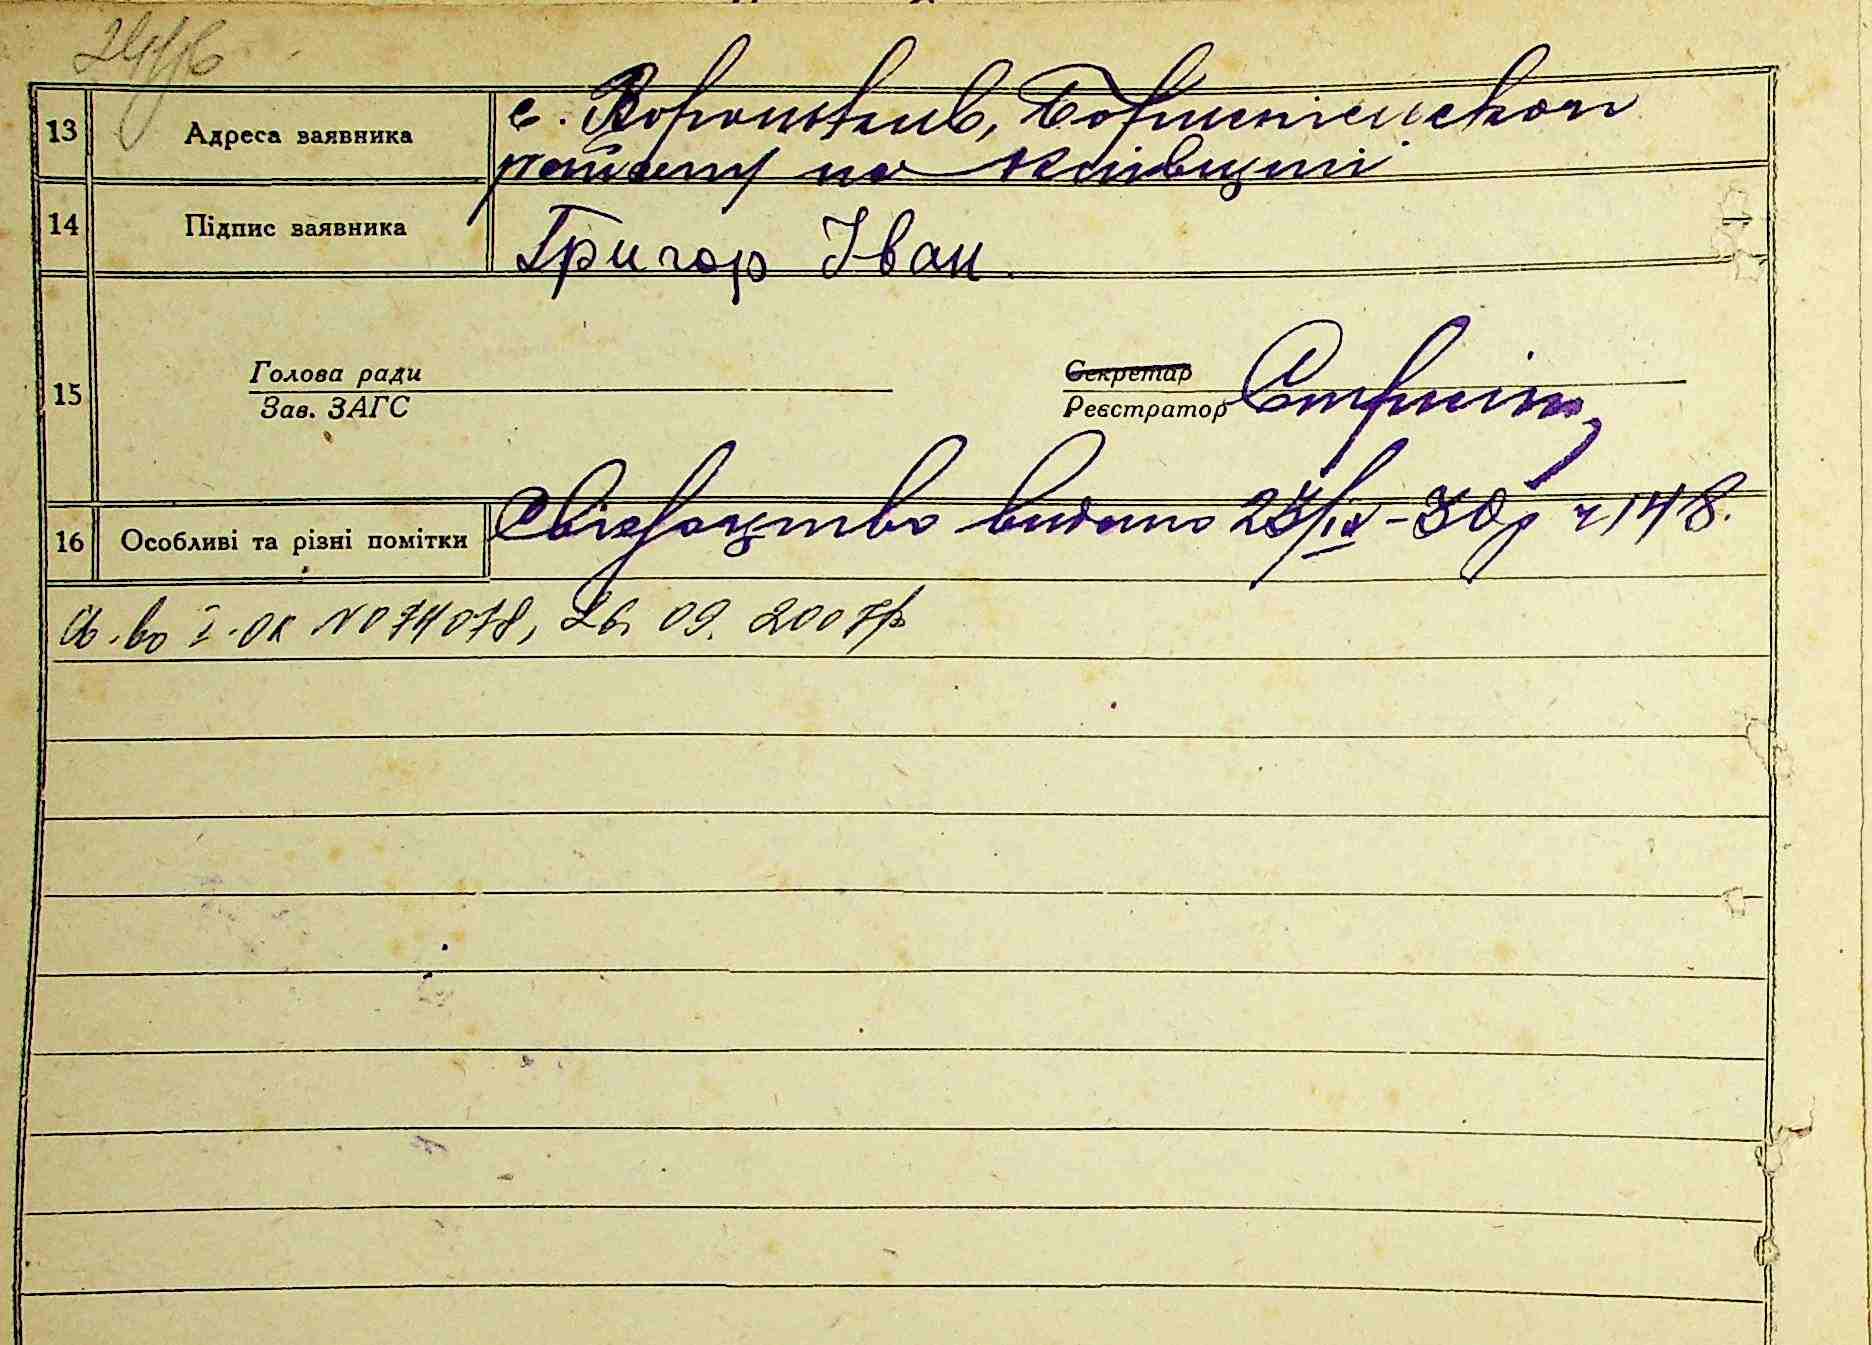 13 Адреса заявника с. Вороньків, Бориспільського
району на Київщині
14 Підпис заявника Григор Іван.
15 Голова ради Секретар
Зав. ЗАГС Реєстратор
16 Особливі та різні помітки Свідоцтво видано 23/IX-30р ч 148.
Св-во І-ОК № 074078, 26. 09. 2007р